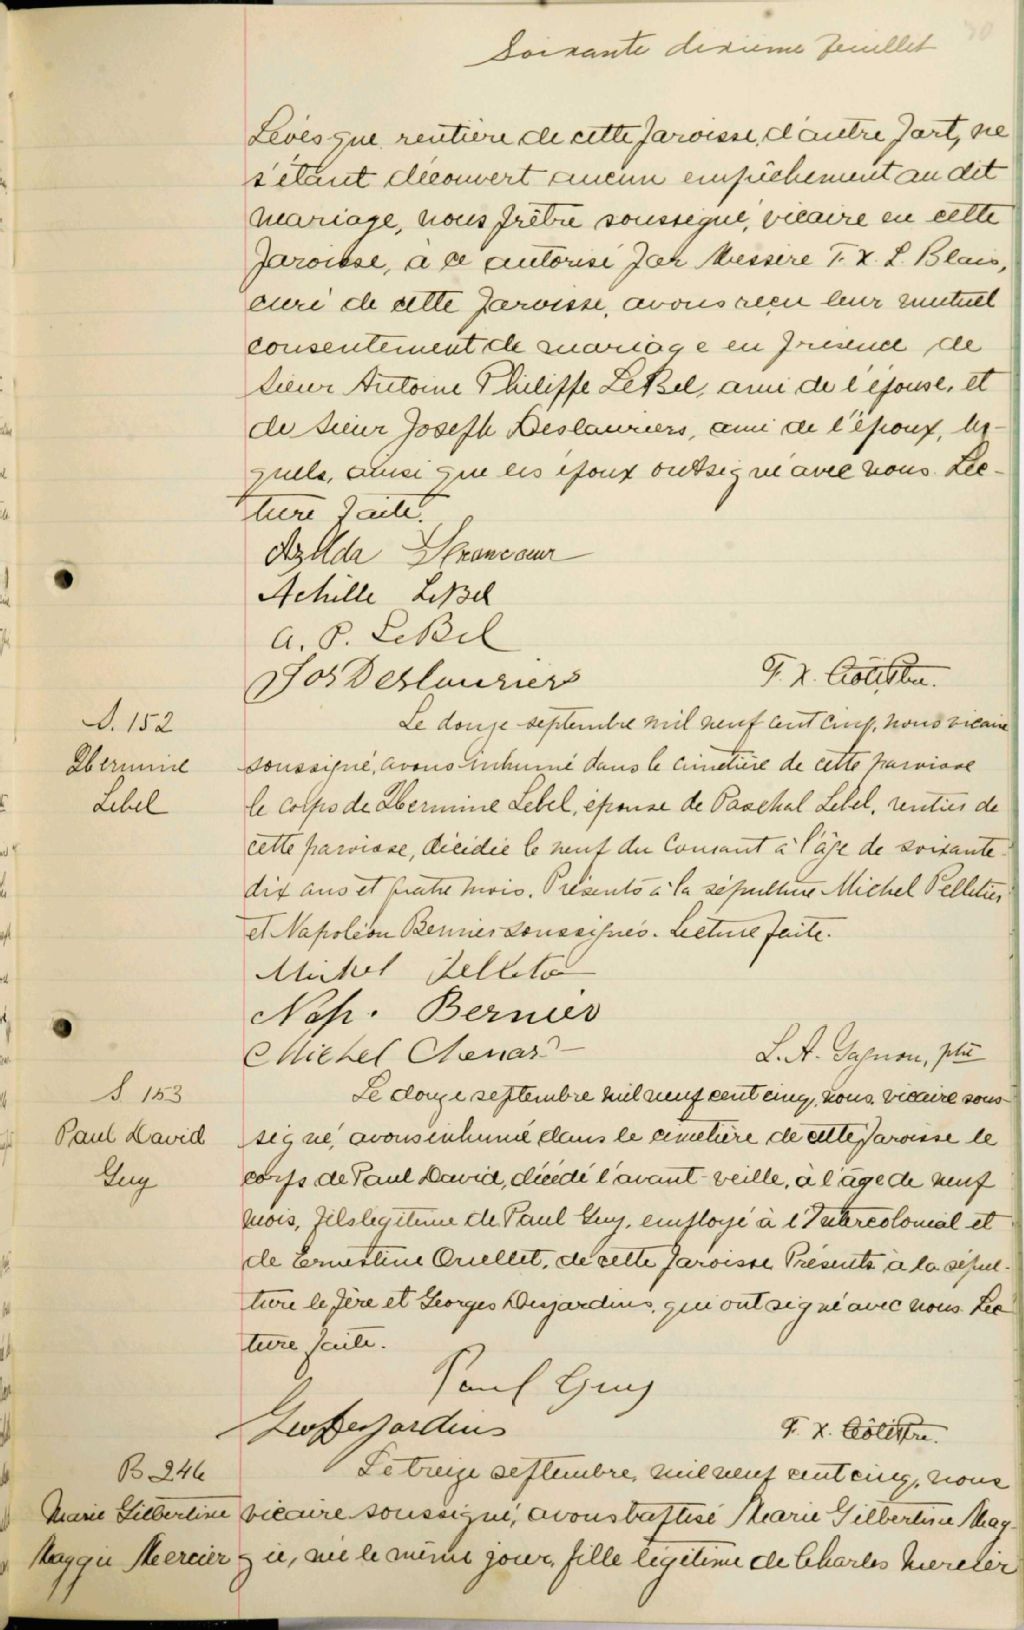 Soixante dixième feuillet
70
Lévèsque rentière de cette paroisse, d'autre part, ne
s'étant découvert aucun empêchement au dit
mariage, nous prêtre soussigné, vicaire en cette
paroisse, à ce autorisé par Messire F. X. L. Blais,
curé de cette paroisse, avons reçu leur mutuel
consentement de mariage en présence de
Sieur Antoine Philippe LeBel, ami de l'épouse, et
de Sieur Joseph Deslauriers, ami de l'époux, les-
quels, ainsi que les époux ont signé avec nous. Lec-
ture faite.
Azilda Francoeur
Achille LeBel
A. P. LeBel
Jos Deslauriers
F. X. Côté, Ptre.
S. 152
Hermine
Lebel
Le douze septembre mil neuf cent cinq, nous vicaire
soussigné, avons inhumé dans le cimetière de cette paroisse
le corps de Hermine Lebel, épouse de Paschal Lebel, rentier de
cette paroisse, décédée le neuf du courant à l'âge de soixante-
dix ans et quatre mois. Présents à la sépulture Michel Pelletier
et Napoléon Bernier soussignés. Lecture faite.
Michel Pelletier
Nap. Bernier
Michel Chenard
L. A. Gagnon, ptre
S 153
Paul David
Guy
Le douze septembre mil neuf cent cinq, nous, vicaire sous-
signé, avons inhumé dans le cimetière de cette paroisse le
corps de Paul David, décédé l'avant-veille, à l'âge de neuf
mois, fils légitime de Paul Guy, employé à l'Intercolonial et
de Ernestine Ouellet, de cette paroisse. Présents à la sépul-
ture le père et Georges Desjardins, qui ont signé avec nous. Lec
ture faite.
Paul Guy
Geo Desjardins
F. X. Côté, Ptre.
B 246
Marie Gilbertine
Maggie Mercier
Le treize septembre, mil neuf cent cinq, nous
vicaire soussigné, avons baptisé Marie Gilbertine Mag-
gie, née le même jour, fille légitime de Charles Mercier